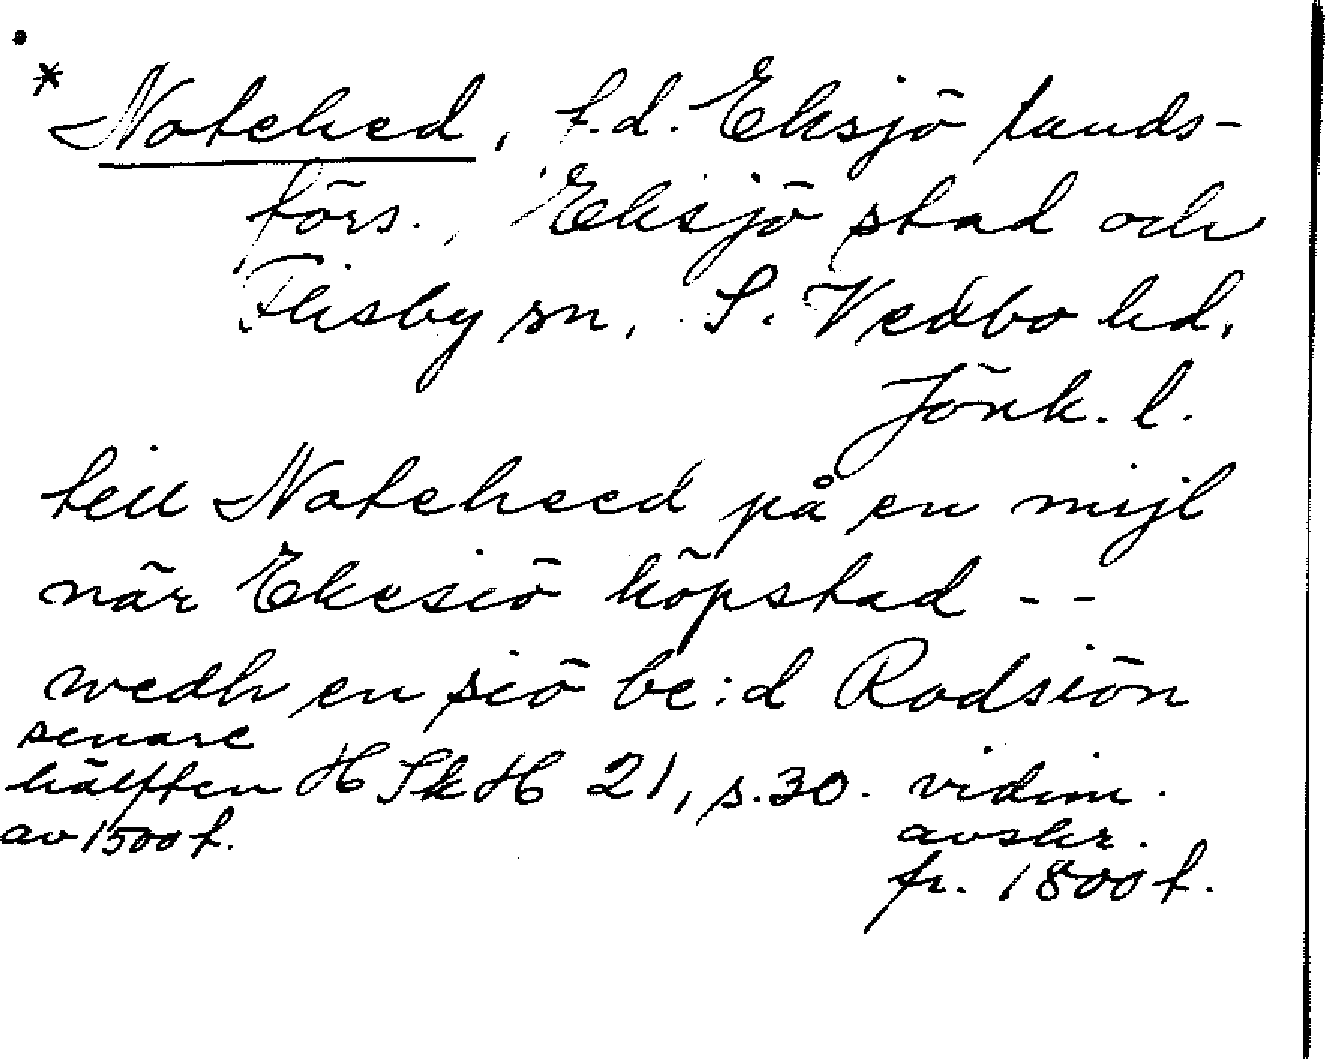 * Notehed, f.d. Eksjö lands-
förs., Eksjö stad och
Flisby sn, S. Vedbo hd,
Jönk. l.
till Noteheed på en mijl
när Ekesiö köpstad - -
wedh en siö be:d Rodsiön
senare
hälften H Sk H 21, s. 30. vidim.
av 1500 t. avskr.
fr. 1800 t.